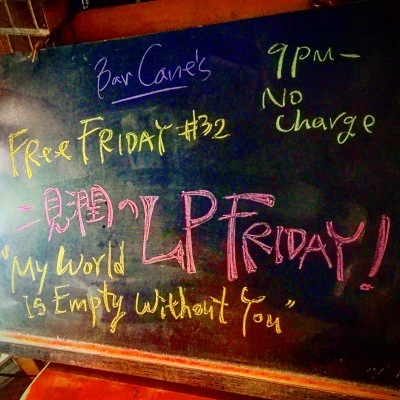 Bar Cane's
9PM-
No
charge
Free FRIDAY #32
二見潤の LP FRIDAY!
"My World
is Empty Without You"